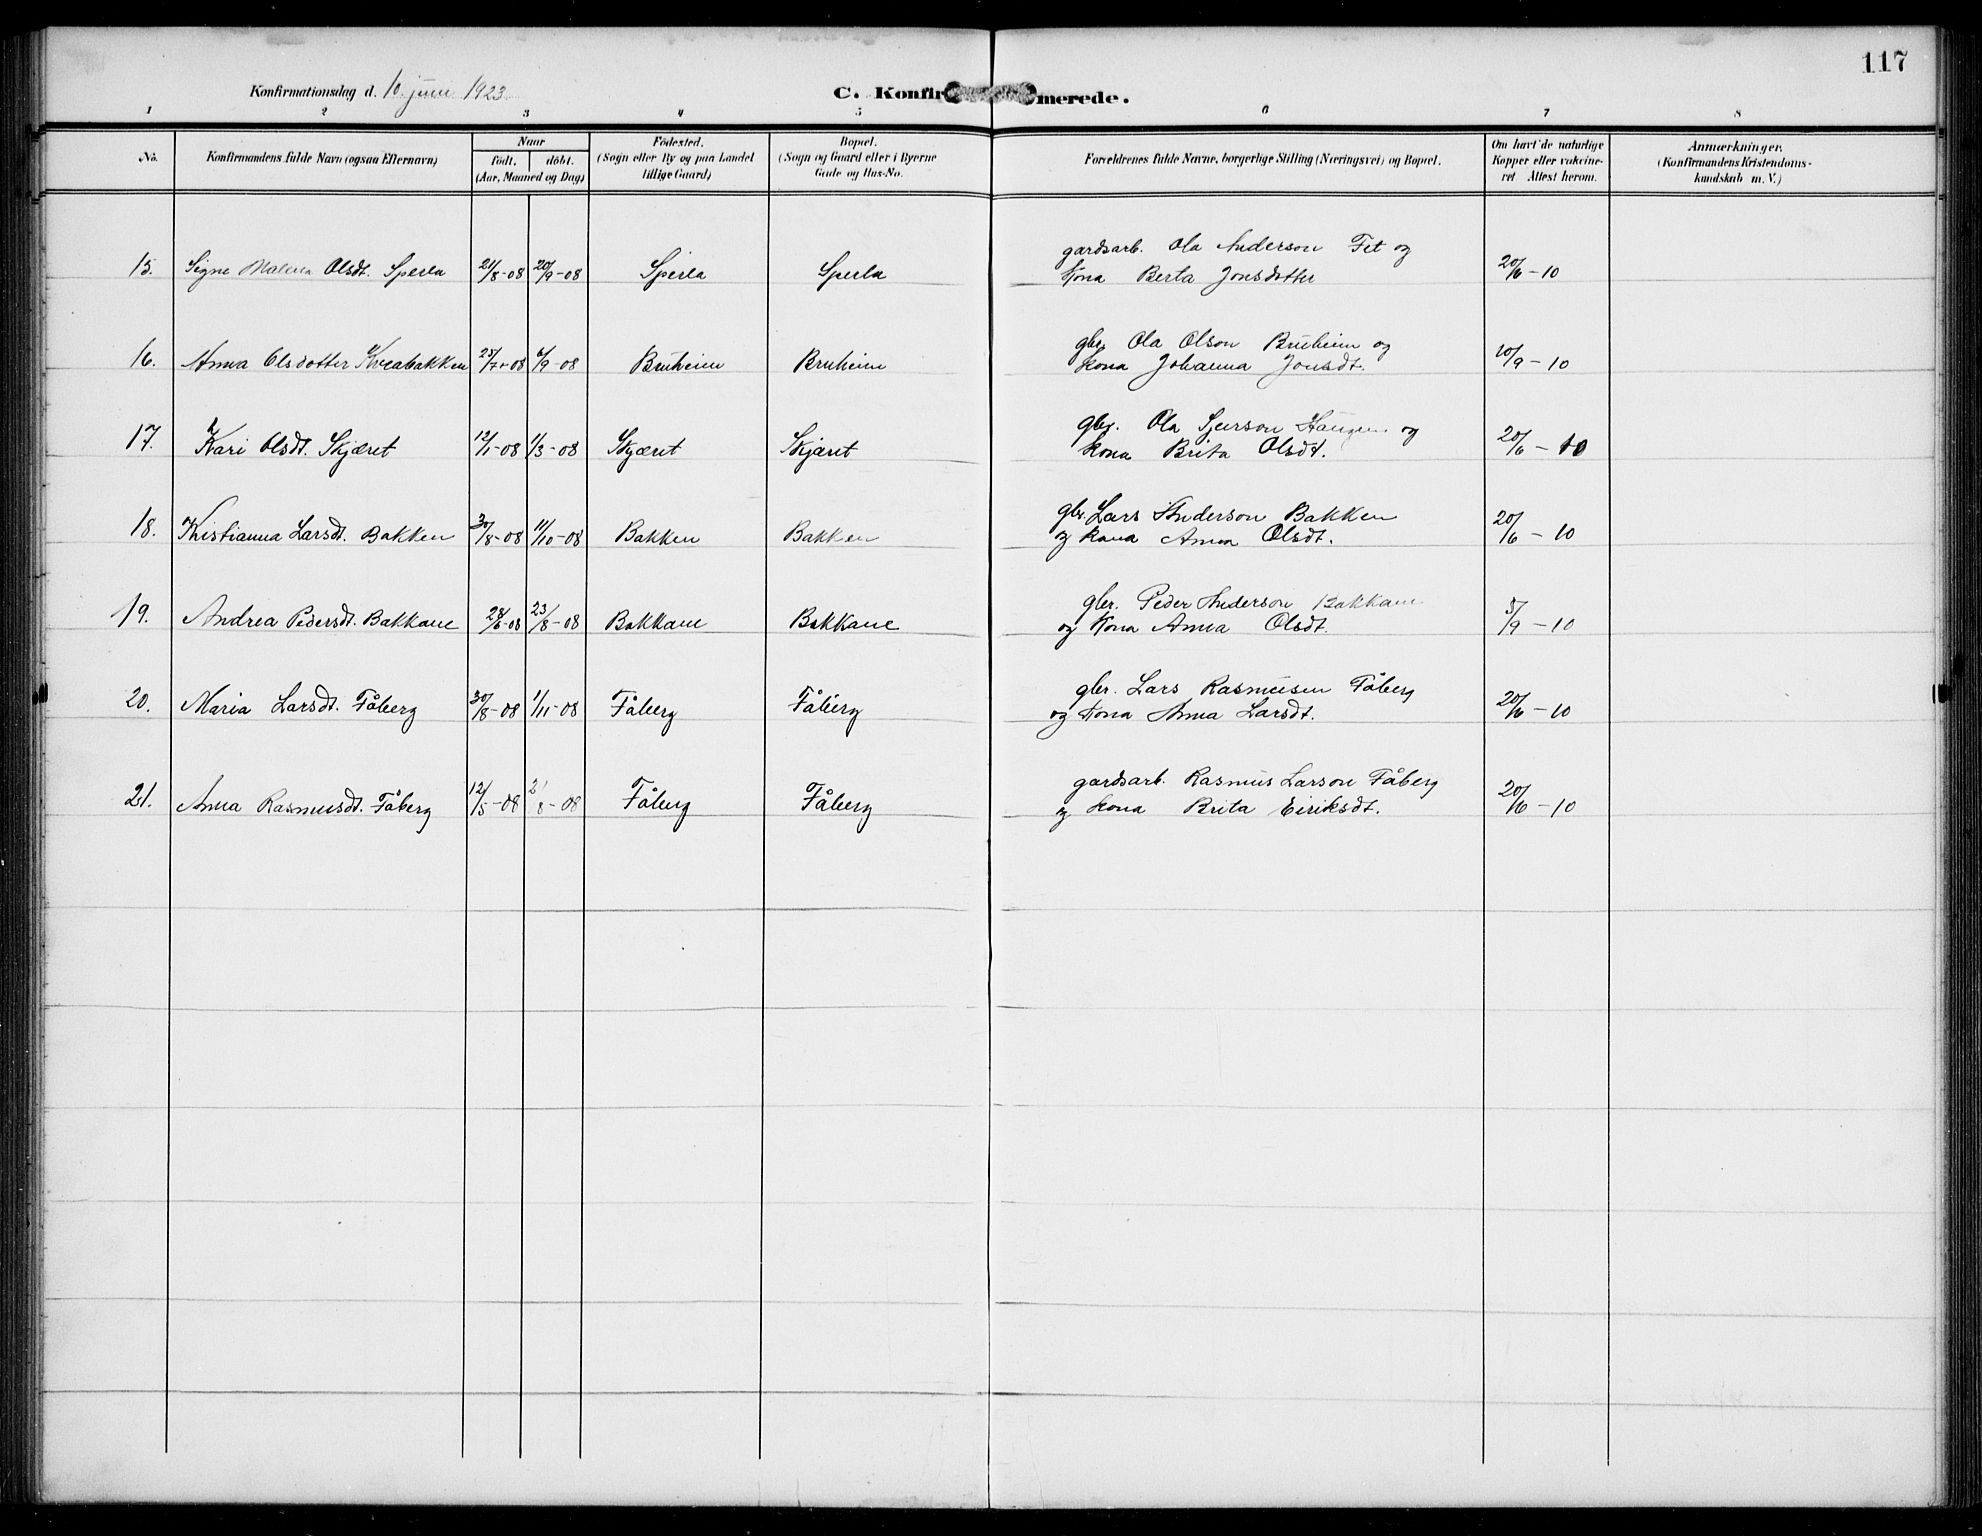 117
Konfirmationsdag d. 10 juni 1923
C. Konfir merede.
1 2 3 4 5 6 7 8
No.
Konfirmandens fulde Navn (ogsaa Efternavn)
Naar
født. døbt.
(Aar, Maaned og Dag)
Fødested.
(Sogn eller By og paa Landet
tillige Gaard)
Bopæl.
(Sogn og Gaard eller i Byerne
Gade og Hus-No.
Forældrenes fulde Navne, borgerlige Stilling (Næringsvei) og Bopæl.
Om havt de naturlige
Kopper eller vakcine-
ret Attest herom.
Anmærkninger.
(Konfirmandens Kristendoms-
kundskab m. V.)
gardsarb. Ola Anderson Fet og
15. Signe Malena Olsdt. Sperla 21/8-08 20/9-08 Sperla Sperla kona Berta Jonsdotter 20/6-10
gbr. Ola Olson Bruheim og
16. Anna Olsdotter Kveabakken 25/7-08 6/9-08 Bruheim Bruheim kona Johanna Jonsdt. 10/9-10
gbr. Ola Sjurson Haugen og
17. Kari Olsdt. Skjæret 12/1-08 1/3-08 Skjæret Skjæret kona Brita Olsdt. 20/6-10
gbr. Lars Anderson Bakken
18. Kristianna Larsdt. Bakken 30/8-08 11/10-08 Bakken Bakken og kona Anna Olsdt. 20/6-10
gbr. Peder Anderson Bakkane
19. Andrea Pedersdt. Bakkane 28/6-08 23/8-08 Bakkane Bakkane og kona Anna Olsdt. 5/9-10
gbr. Lars Rasmusen Fåberg
20. Maria Larsdt. Fåberg 30/8-08 1/11-08 Fåberg Fåberg og kona Anna Larsdt. 20/6-10
gardsarb. Rasmus Larson Fåberg
21. Anna Rasmusdt. Fåberg 12/5-08 8-08 Fåberg Fåberg og kona Brita Eiriksdt. 20/6-10